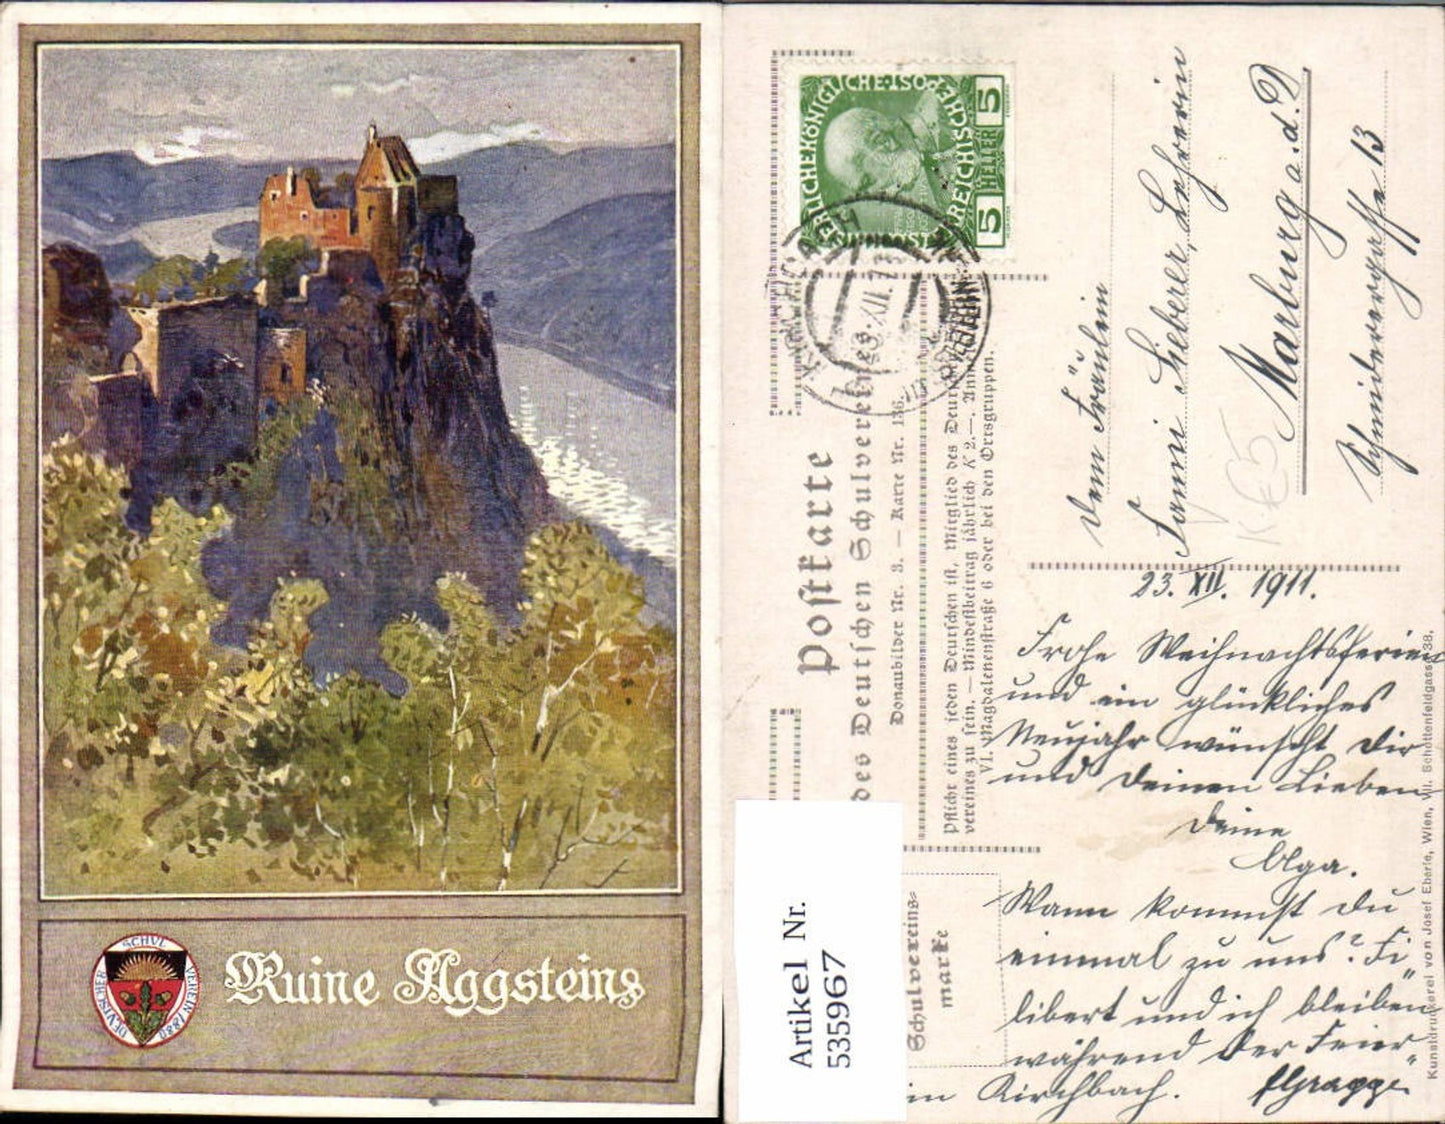 Ruine Aggstein
DEUTSCHER SCHUL VEREIN 1880
KAISERLICHE KÖNIGLICHE ÖSTERREICHISCHE POST
5 HELLER 5
Postkarte
des Deutschen Schulvereines.
Donaubilder Nr. 3. — Karte Nr. 136.
Pflicht eines jeden Deutschen ist, Mitglied des Deutschen
vereines zu sein. — Mindestbeitrag jährlich K 2.—.
VI. Magdalenenstraße 6 oder bei den Ortsgruppen.
Schulvereins-
marke
Artikel Nr.
535967
Dem Fräulein
Lehrerin
Marburg a. d. D
13
23. XII. 1911.
Frohe Weihnachtsferien
und ein glückliches
Neujahr wünscht Dir
und Deinen Lieben
Deine
Olga.
Wann kommst du
einmal zu uns?
und ich bleiben
während der Feier-
in Kirchbach.
Kunstdruckerei von Josef Eberle, Wien, VII. Schottenfeldgasse 38.